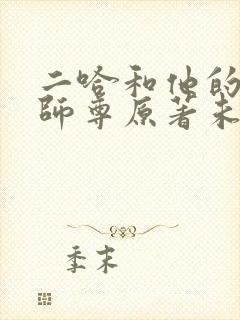 二哈和他的
師尊原著未
季末